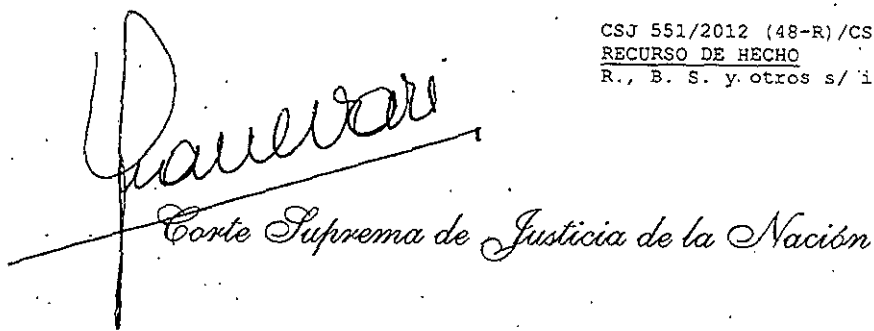 CSJ 551/2012 (48-R)/CS
RECURSO DE HECHO
R., B. S. y otros s/ i
Corte Suprema de Justicia de la Nación